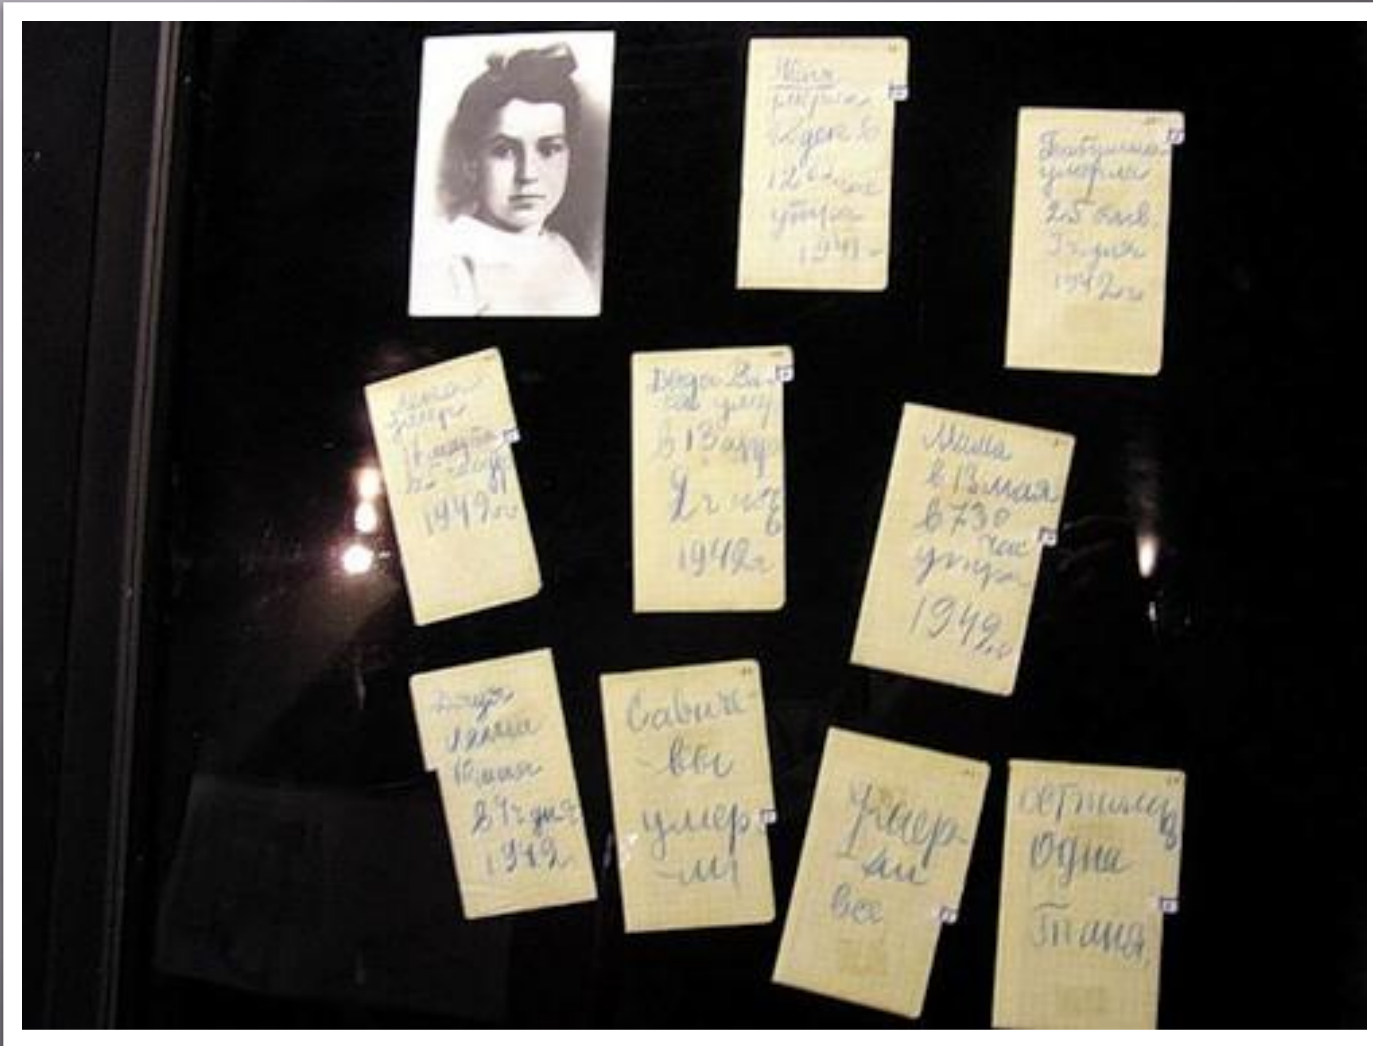 Женя
умерла
28 дек в
12 00 час
утра
1941 г
Бабушка
умерла
25 янв.
3 ч. дня
1942 г.
умер
17 марта
1942 г
Дядя Ва-
ся умер
в 13 апр
2 ч ночь
1942 г
Мама
в 13 мая
в 7 30
час
утра
1942 г
Дядя
Лёша
10 мая
в 4 ч дня
1942
Савиче-
-вы
умер-
-ли
Умер-
ли
все
Осталась
одна
Таня.